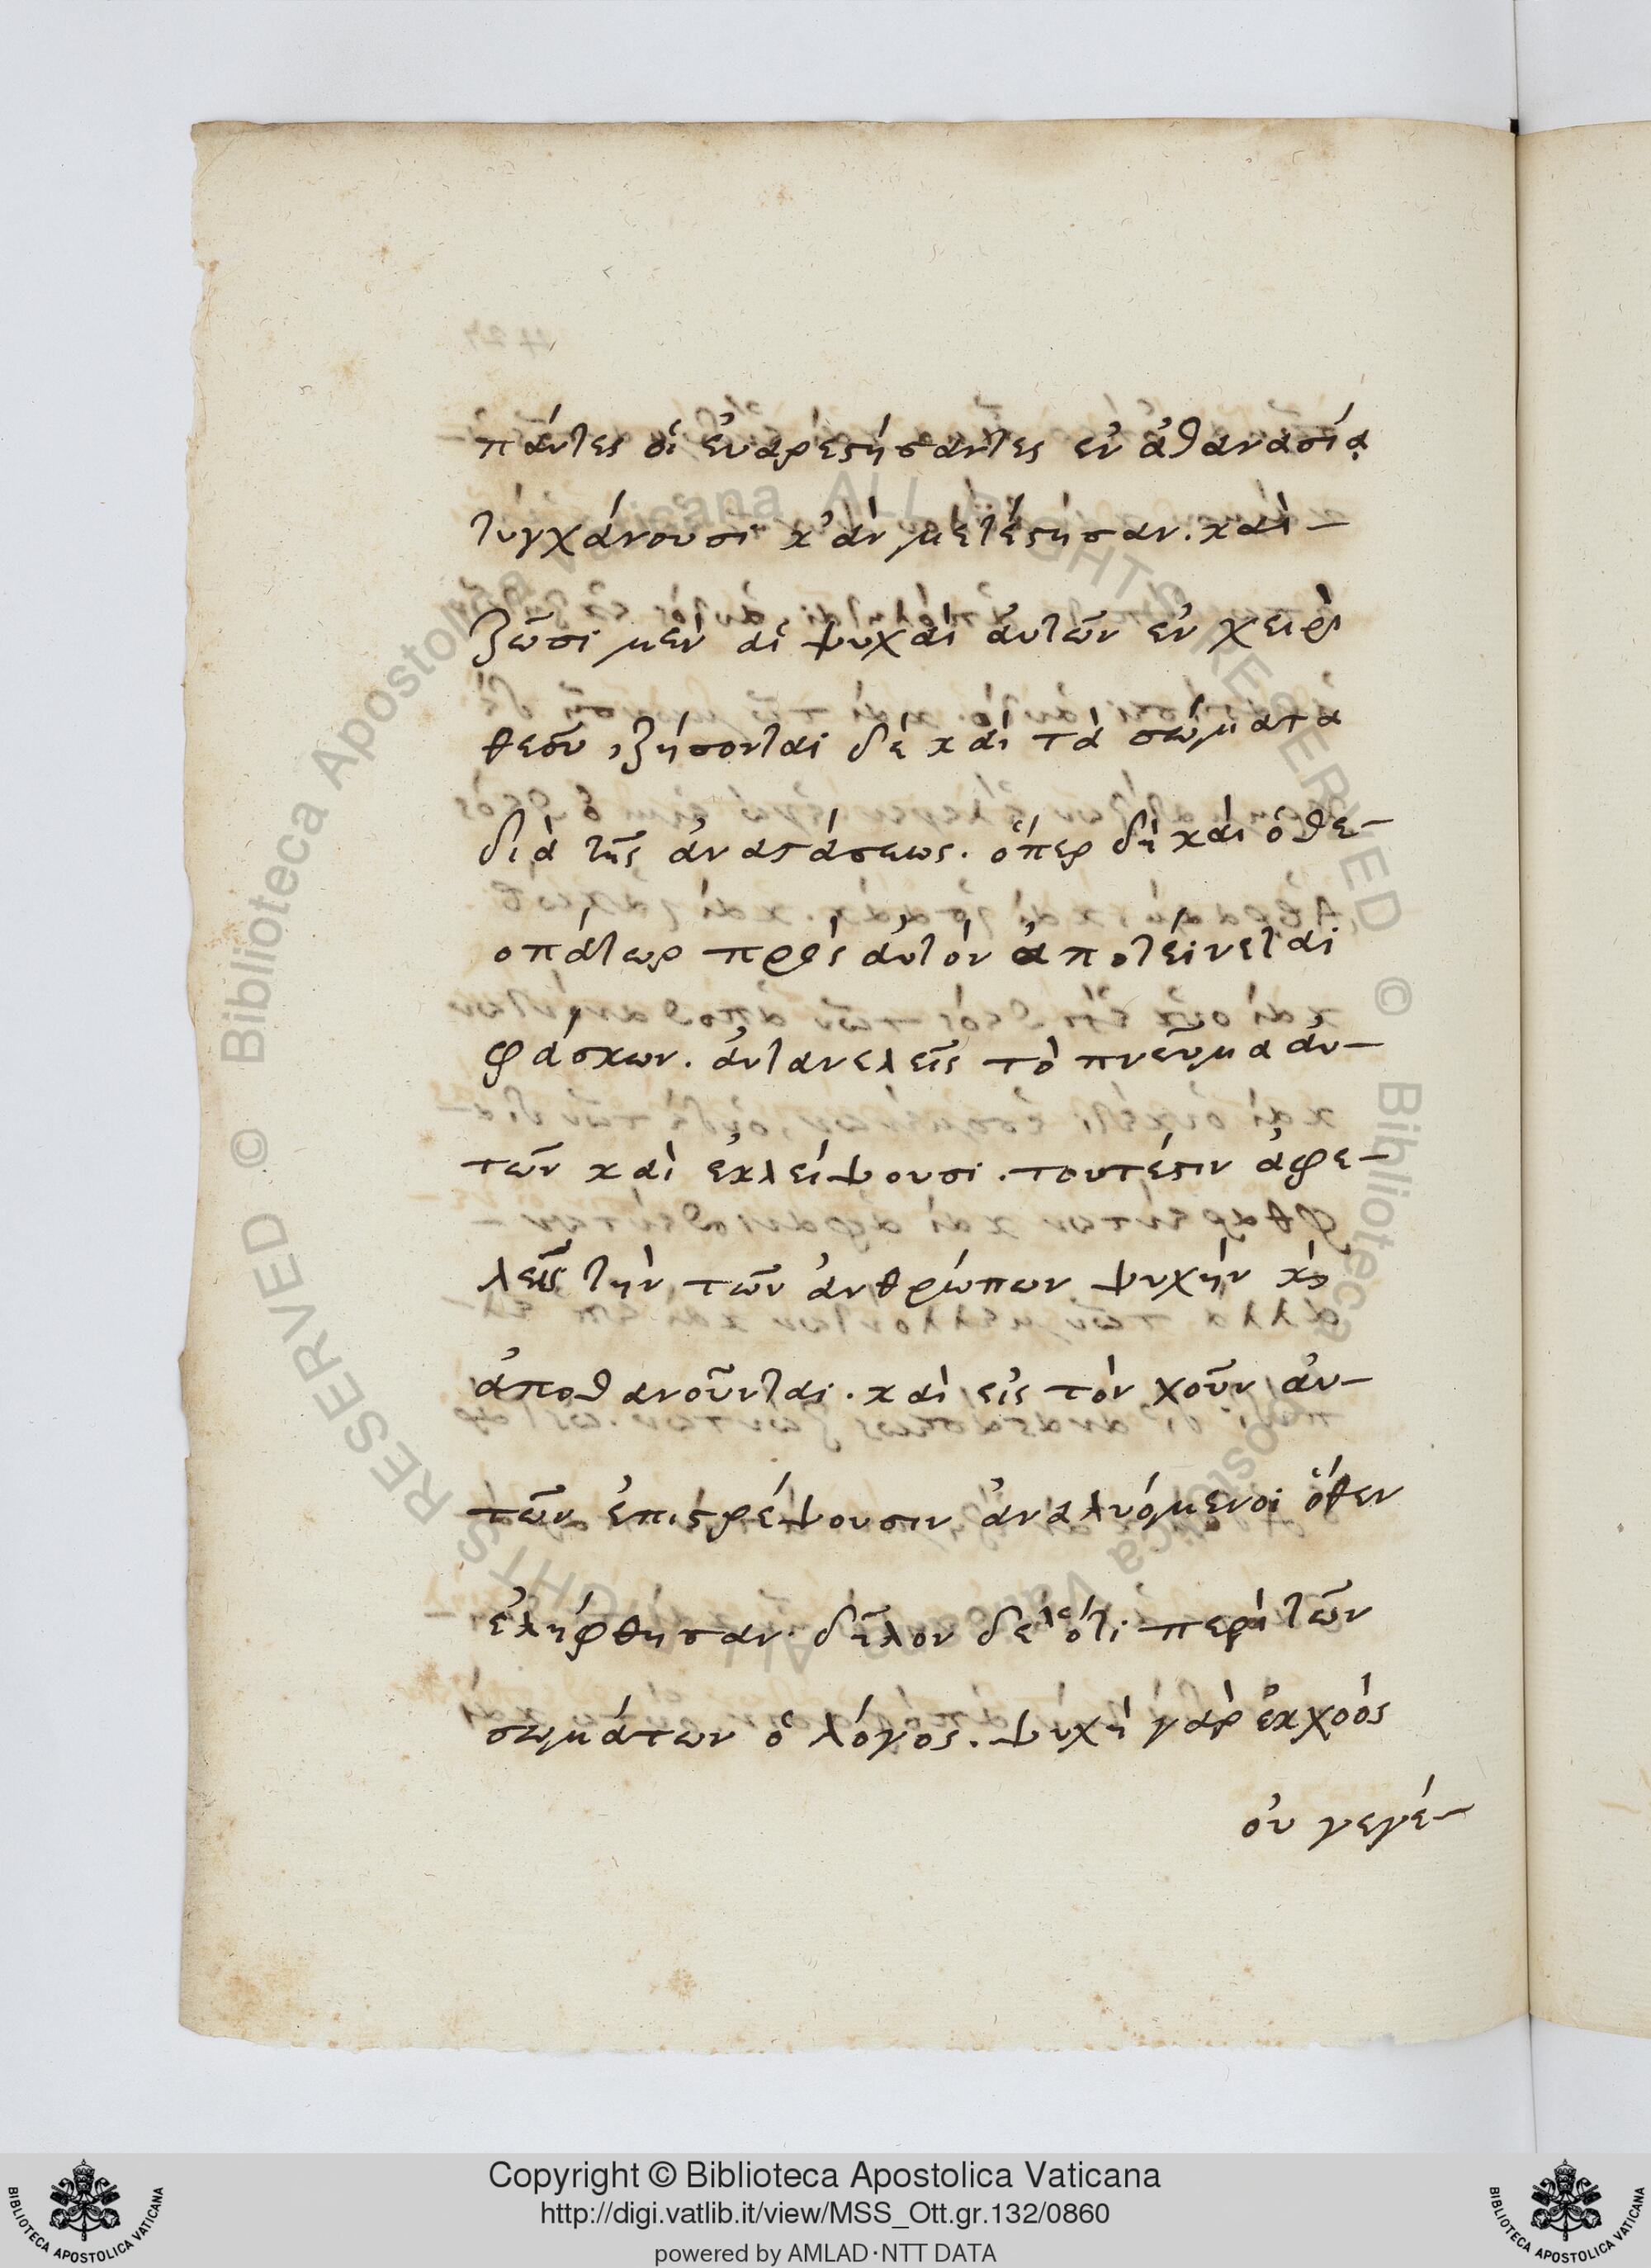 πάντες οἱ ἐυαρεστήσαντες ἐν ἀθανασίᾳ
τυγχάνουσι κ' ἀν μετέστησαν. καὶ—
ζῶσι μὲν αἱ ψυχαὶ ἀυτῶν ἐν χειρὶ
θεοῦ, ζήσονται δὲ καὶ τὰ σώματα
διὰ τῆς ἀναστάσεως. ὅπερ δὴ καὶ ὁ θε—
οπάτωρ πρὸς ἀυτὸν ἀποτείνεται
φάσκων. ἀντανελεῖς τὸ πνεῦμα ἀυ—
τῶν καὶ ἐκλείψουσι. τουτέστιν ἀφε—
λεῖς τὴν τῶν ἀνθρώπων ψυχὴν κὸ
ἀποθανοῦνται. καὶ εἰς τὸν χοῦν ἀυ—
τῶν ἐπιστρέψουσιν ἀναλυόμενοι ὅθεν
ἐλήφθησαν. δῆλον δὲ ὅτι περὶ τῶν
σωμάτων ὁ λόγος. ψυχὴ γὰρ ἐκ χοὸς
οὐ γεγέ—
Copyright © Biblioteca Apostolica Vaticana
http://digi.vatlib.it/view/MSS_Ott.gr.132/0860
powered by AMLAD·NTT DATA
BIBLIOTECA APOSTOLICA VATICANA
BIBLIOTECA APOSTOLICA VATICANA
© Biblioteca Apostolica Vaticana ALL RIGHTS RESERVED
© Biblioteca Apostolica Vaticana ALL RIGHTS RESERVED